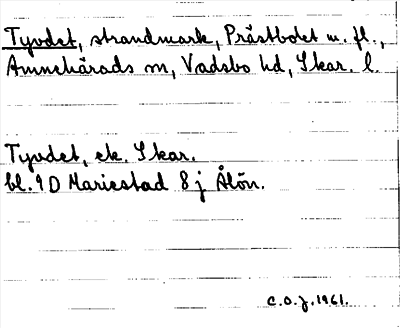 Tyvdet, strandmark, Prästbolet m. fl.,
Amnehärads sn, Vadsbo hd, Skar. l.
Tyvdet, ek. Skar.
bl. 9D Mariestad 8 j Ålön.
C.O.J. 1961.